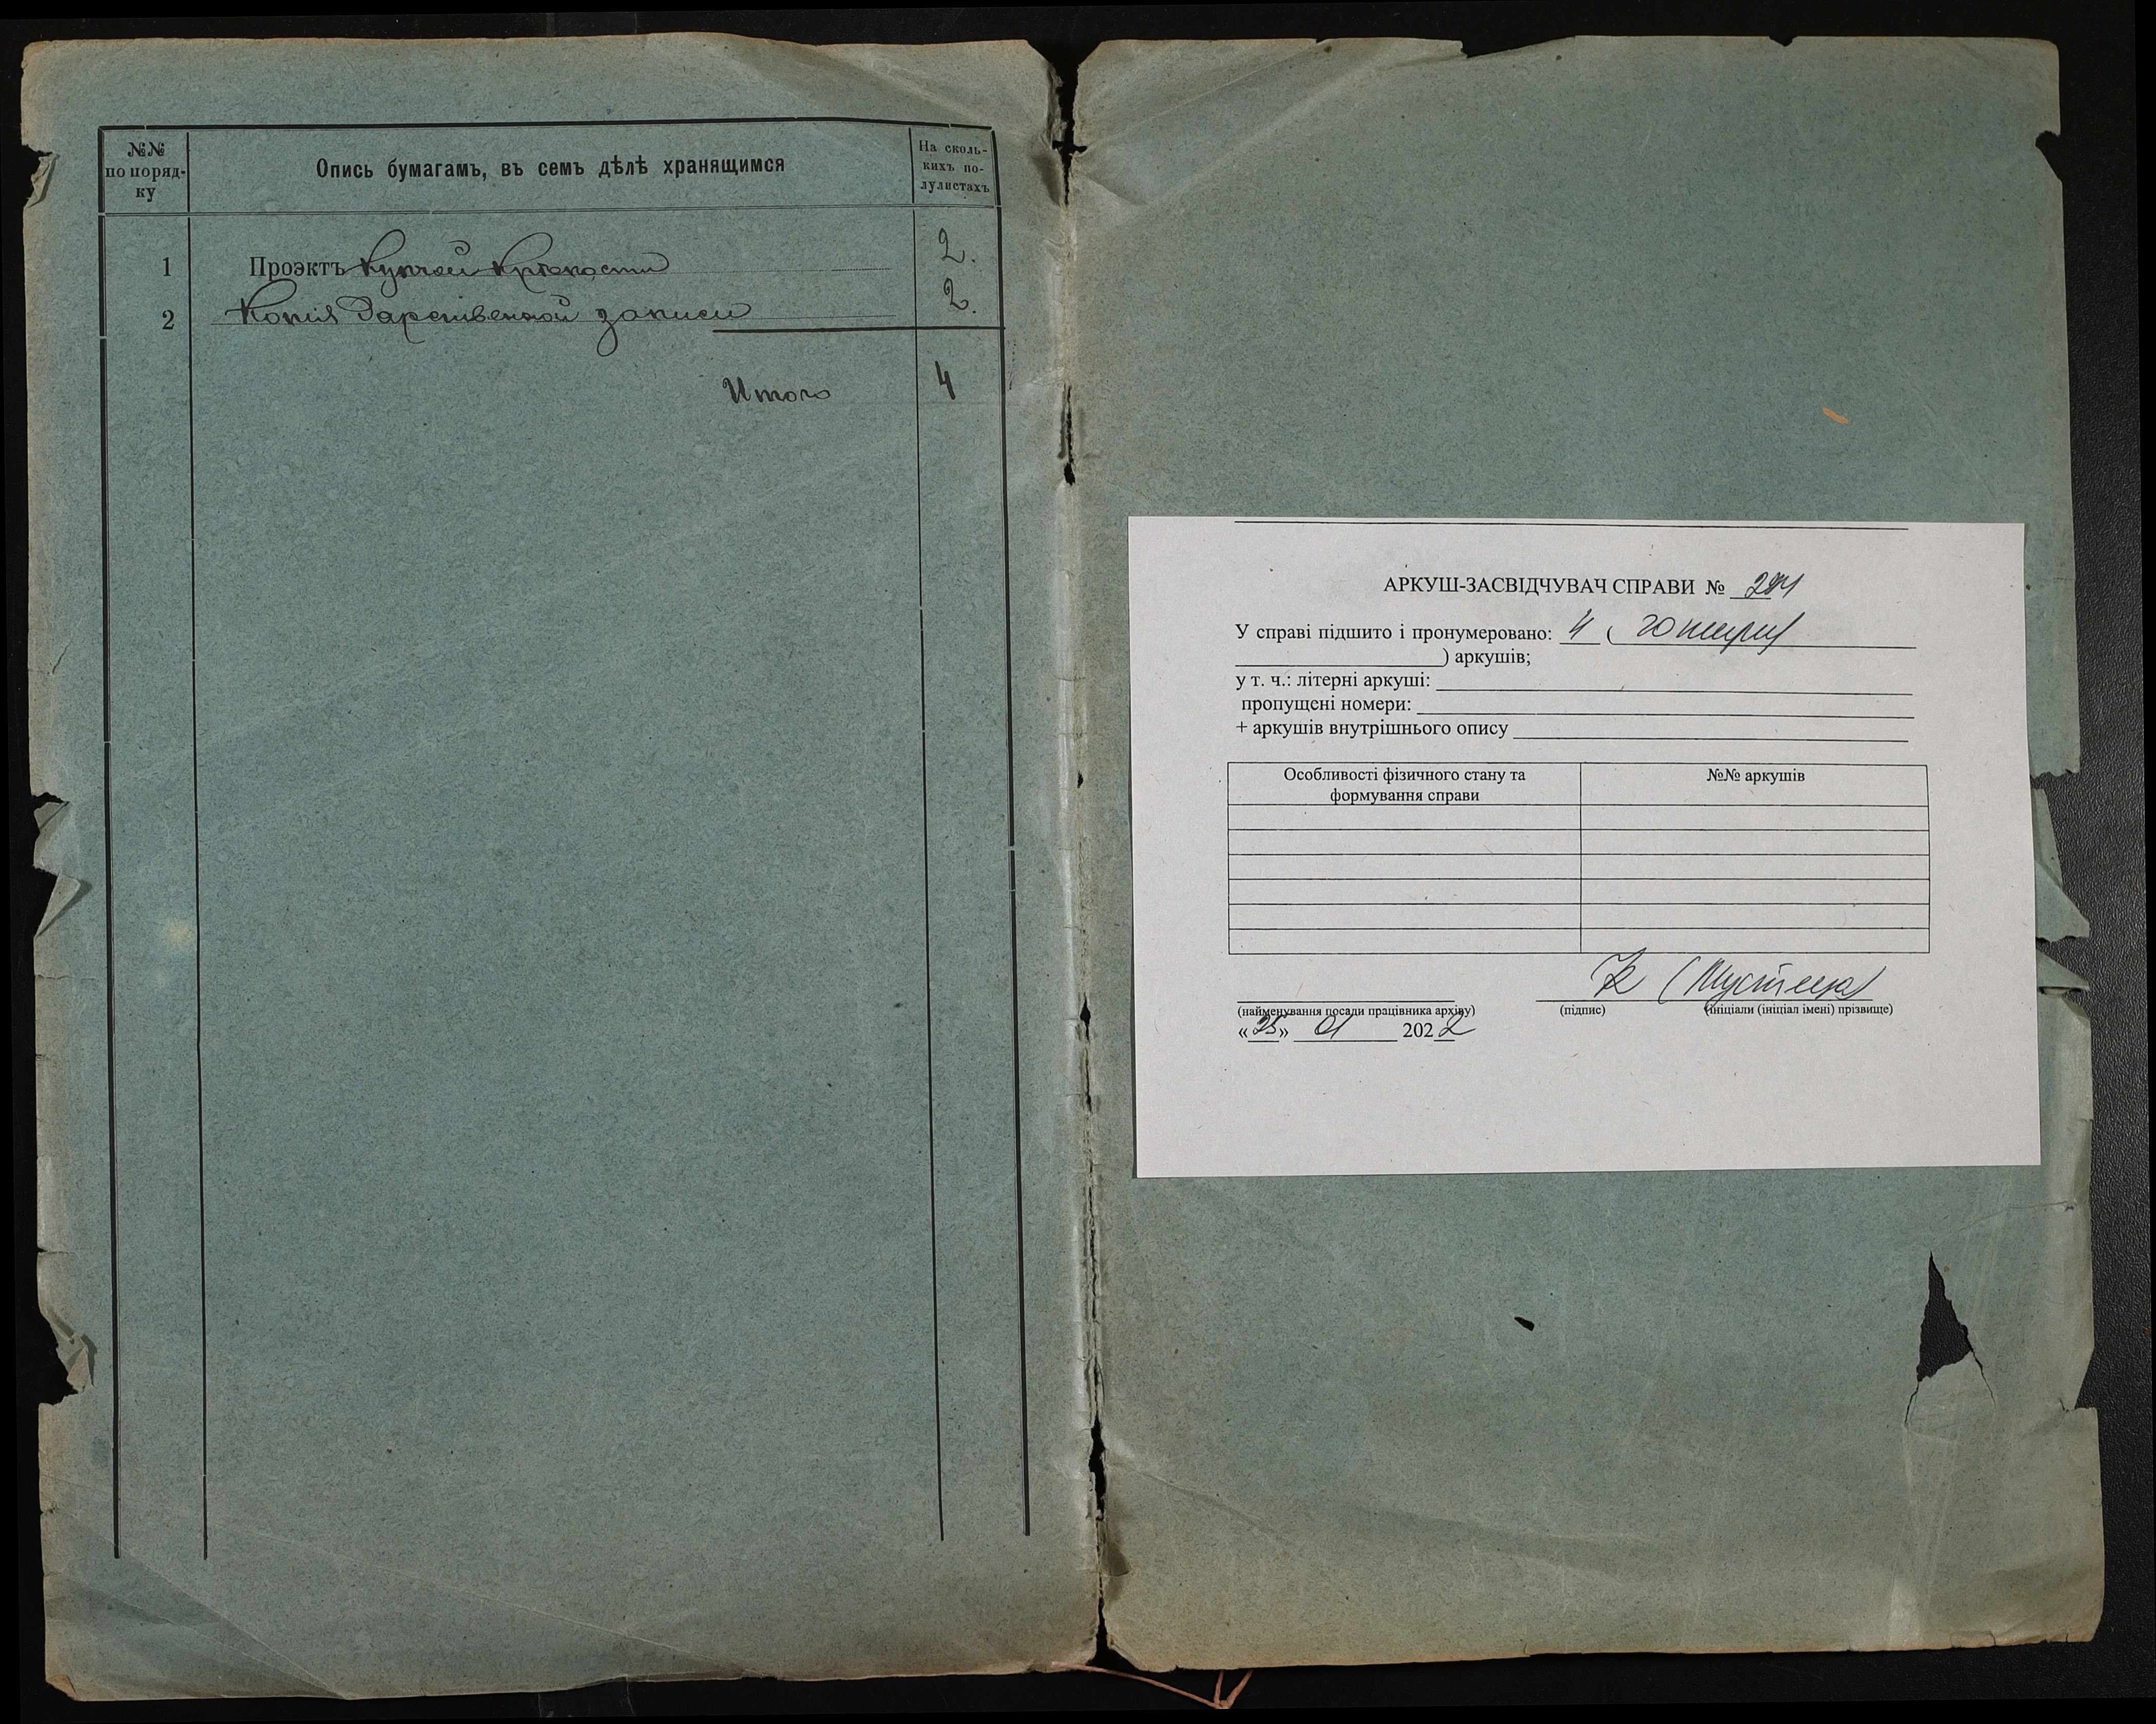 №№
по поряд-
ку
Опись бумагамъ, въ семъ дѣлѣ хранящимся
На сколь-
кихъ по-
лулистахъ
1 Проэктъ Купчей Крѣпости 2.
2 Копія Дарственной записи 2.
Итого 4
АРКУШ-ЗАСВІДЧУВАЧ СПРАВИ №
У справі підшито і пронумеровано: 4 ( чотири
) аркушів;
у т. ч.: літерні аркуші:
пропущені номери:
+ аркушів внутрішнього опису
Особливості фізичного стану та
формування справи
№№ аркушів
(найменування посади працівника архіву) (підпис) (ініціали (ініціал імені) прізвище)
«25» 01 2022